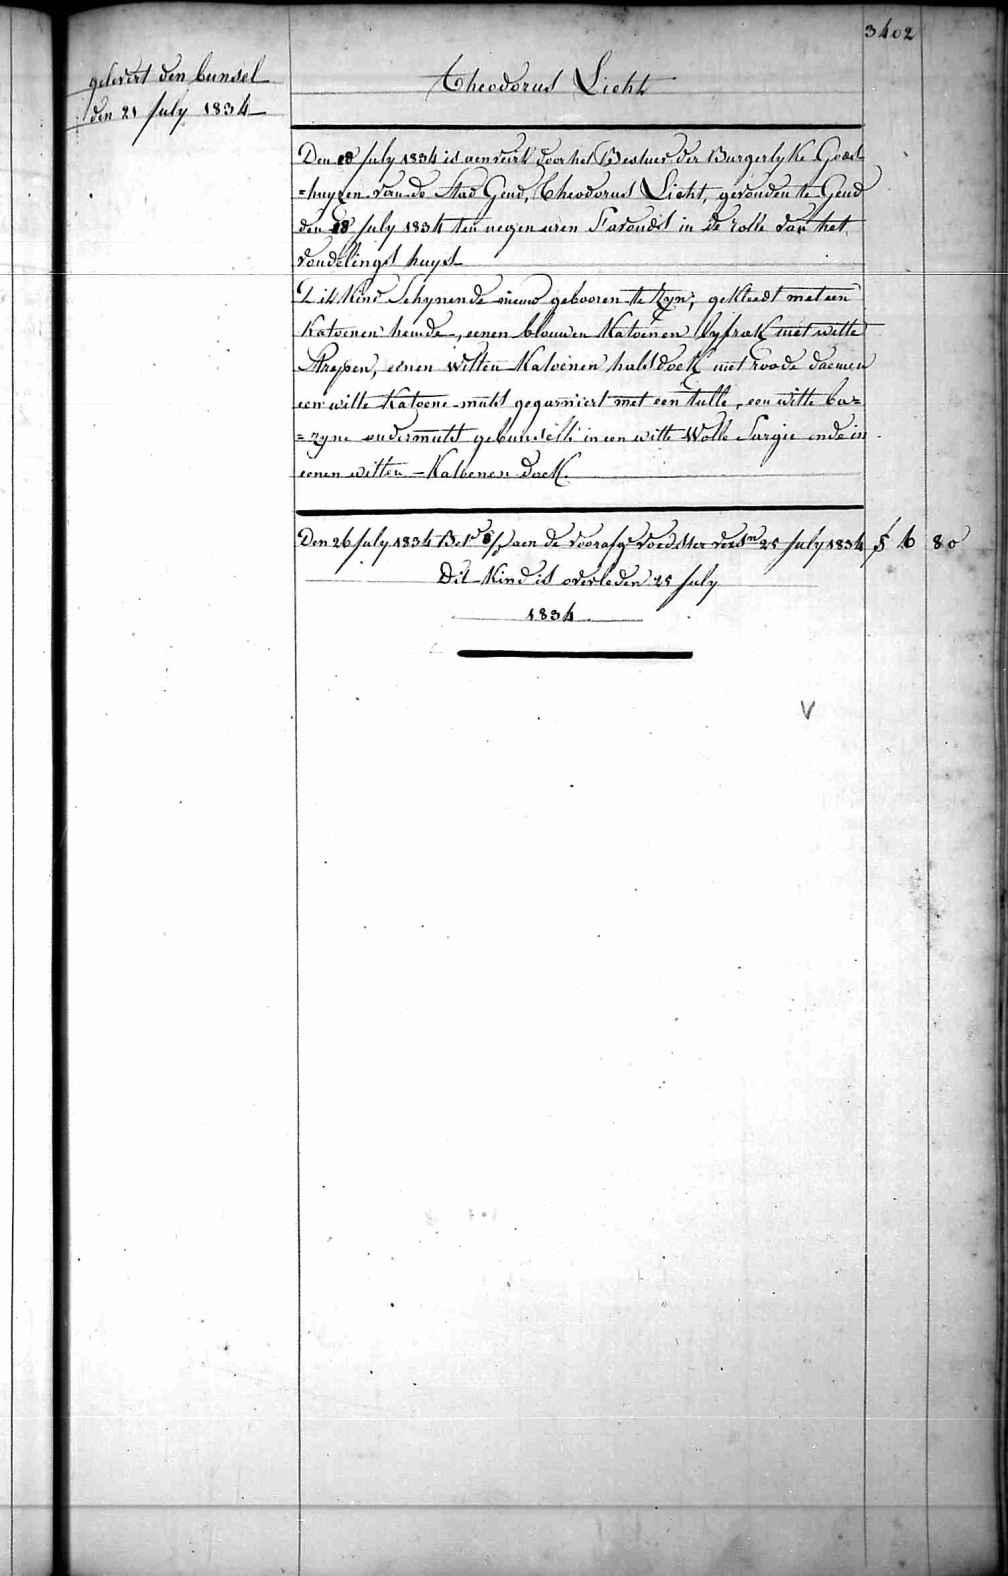 3402
gelevert den bunsel
den 21 July 1834
Theodorus Licht
Den 18 July 1834 is aenveirt door het Bestuer der Burgerlyke Gods-
=huyzen van de Stad Gend, Theodorus Licht, gevonden te Gend
den 18 July 1834 ten negen uren S'avonds in de rolle van het
vondelings huys
Dit Kind Schynende nieuw gebooren te Zyn, gekleedt met een
Katoenen hemde, eenen blauwen Katoenen lyfrok met witte
Strepen, eenen witten Katoenen halsdoek met roode
een witte Katoene muts gegarniert met een tulle, een witte ba=
=zyne ondermuts gebunselt in een witte Wolle Sargie ende in
eenen witten Katoenen doek.
Den 26 July 1834 aen de voedster 25 July 1834 § 6 80
Dit Kind is overleden 25 July
1834
V